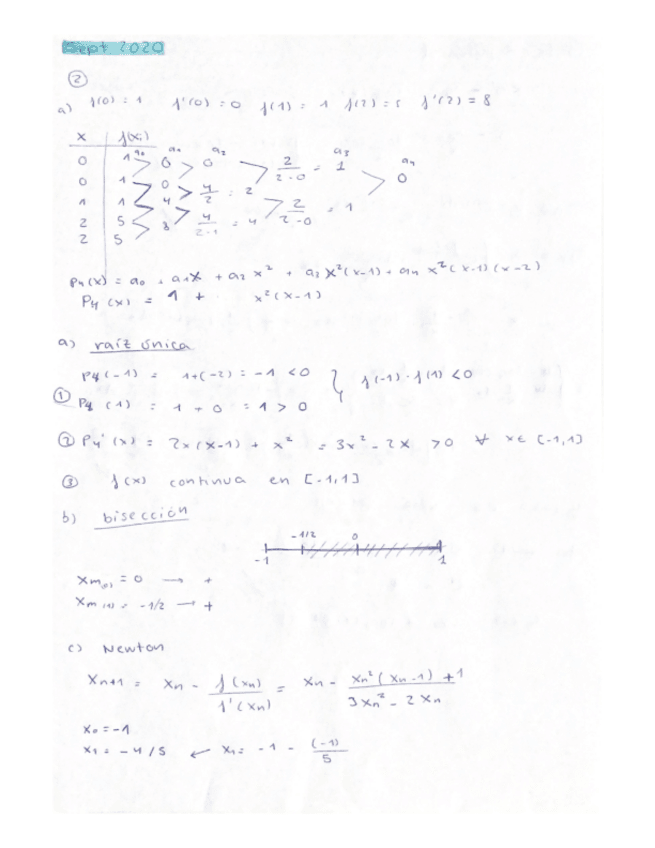 Sept 2020
②
a) f(0) = 1 f'(0) = 0 f(1) = 1 f(2) = 5 f'(2) = 8
x f(xi)
a0 a1 a2 a3 a4
0 1 0 0 2/(2-0) = 1 0
0 1 0 4/2 = 2 2/(2-0) = 1
1 1 4 4/(2-1) = 4
2 5 8
2 5
P4(x) = a0 + a1x + a2 x² + a3 x²(x-1) + a4 x²(x-1)(x-2)
P4(x) = 1 + x²(x-1)
a) raíz única
P4(-1) = 1+(-2) = -1 < 0 } f(-1)·f(1) < 0
① P4(1) = 1 + 0 = 1 > 0
② P4'(x) = 2x(x-1) + x² = 3x² - 2x > 0 ∀ x∈ [-1,1]
③ f(x) continua en [-1,1]
b) bisección
-1/2 0
-1 1
Xm(0) = 0 → +
Xm(1) = -1/2 → +
c) Newton
Xn+1 = Xn - f(xn)/f'(xn) = Xn - (Xn²(Xn-1) + 1)/(3Xn² - 2Xn)
X0 = -1
X1 = -4/5 ← X1 = -1 - (-1)/5